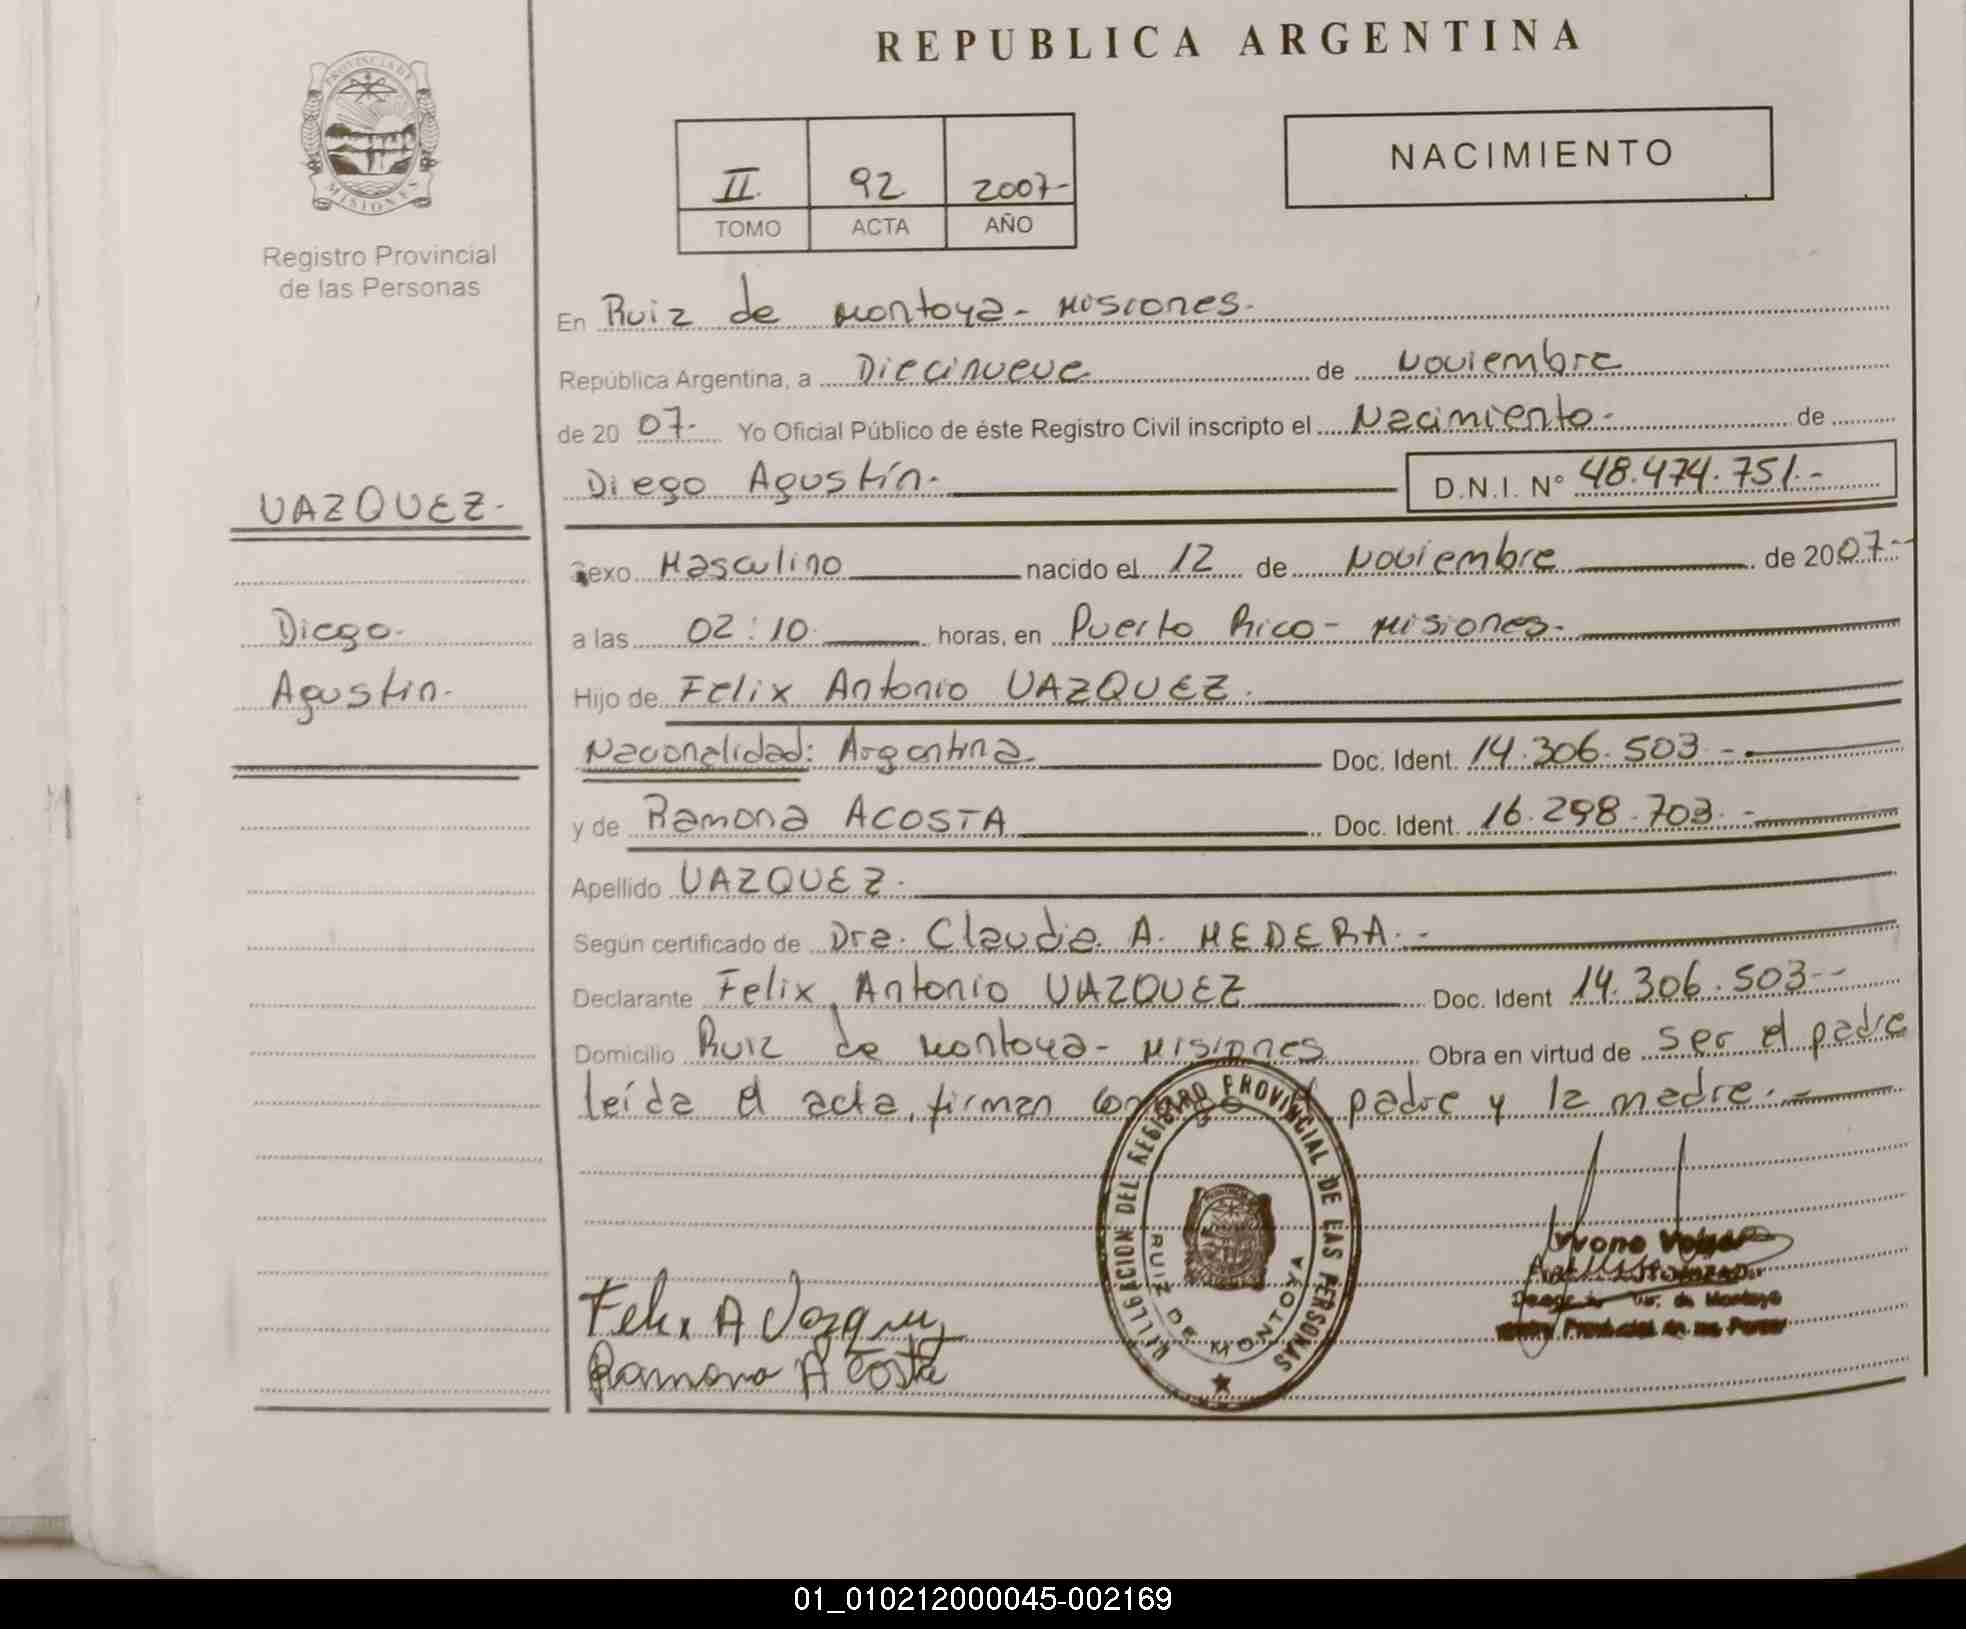 REPUBLICA ARGENTINA
PROVINCIA DE
MISIONES
Registro Provincial
de las Personas
II. 92 2007-
TOMO ACTA AÑO
NACIMIENTO
En Ruiz de Montoya- Misiones.
República Argentina, a Diecinueve de Noviembre
de 20 07- Yo Oficial Público de éste Registro Civil inscripto el Nacimiento- de
Diego Agustín. D.N.I. N° 48.474.751.-
VAZQUEZ.
Diego.
Agustín.
Sexo Masculino nacido el 12 de Noviembre de 20 07-
a las 02:10 horas, en Puerto Rico- Misiones.
Hijo de Felix Antonio VAZQUEZ.
Nacionalidad: Argentina Doc. Ident. 14.306.503-
y de Ramona ACOSTA Doc. Ident. 16.298.703.-
Apellido VAZQUEZ.
Según certificado de Dra. Claudia A. MEDERA.-
Declarante Felix Antonio VAZQUEZ Doc. Ident 14.306.503--
Domicilio Ruiz de Montoya- Misiones Obra en virtud de ser el padre
leída el acta, firman padre y la madre.-
DELEGACION DEL REGISTRO PROVINCIAL DE LAS PERSONAS
RUIZ DE MONTOYA
Felix A Vazquez
Ramona Acosta
01_010212000045-002169